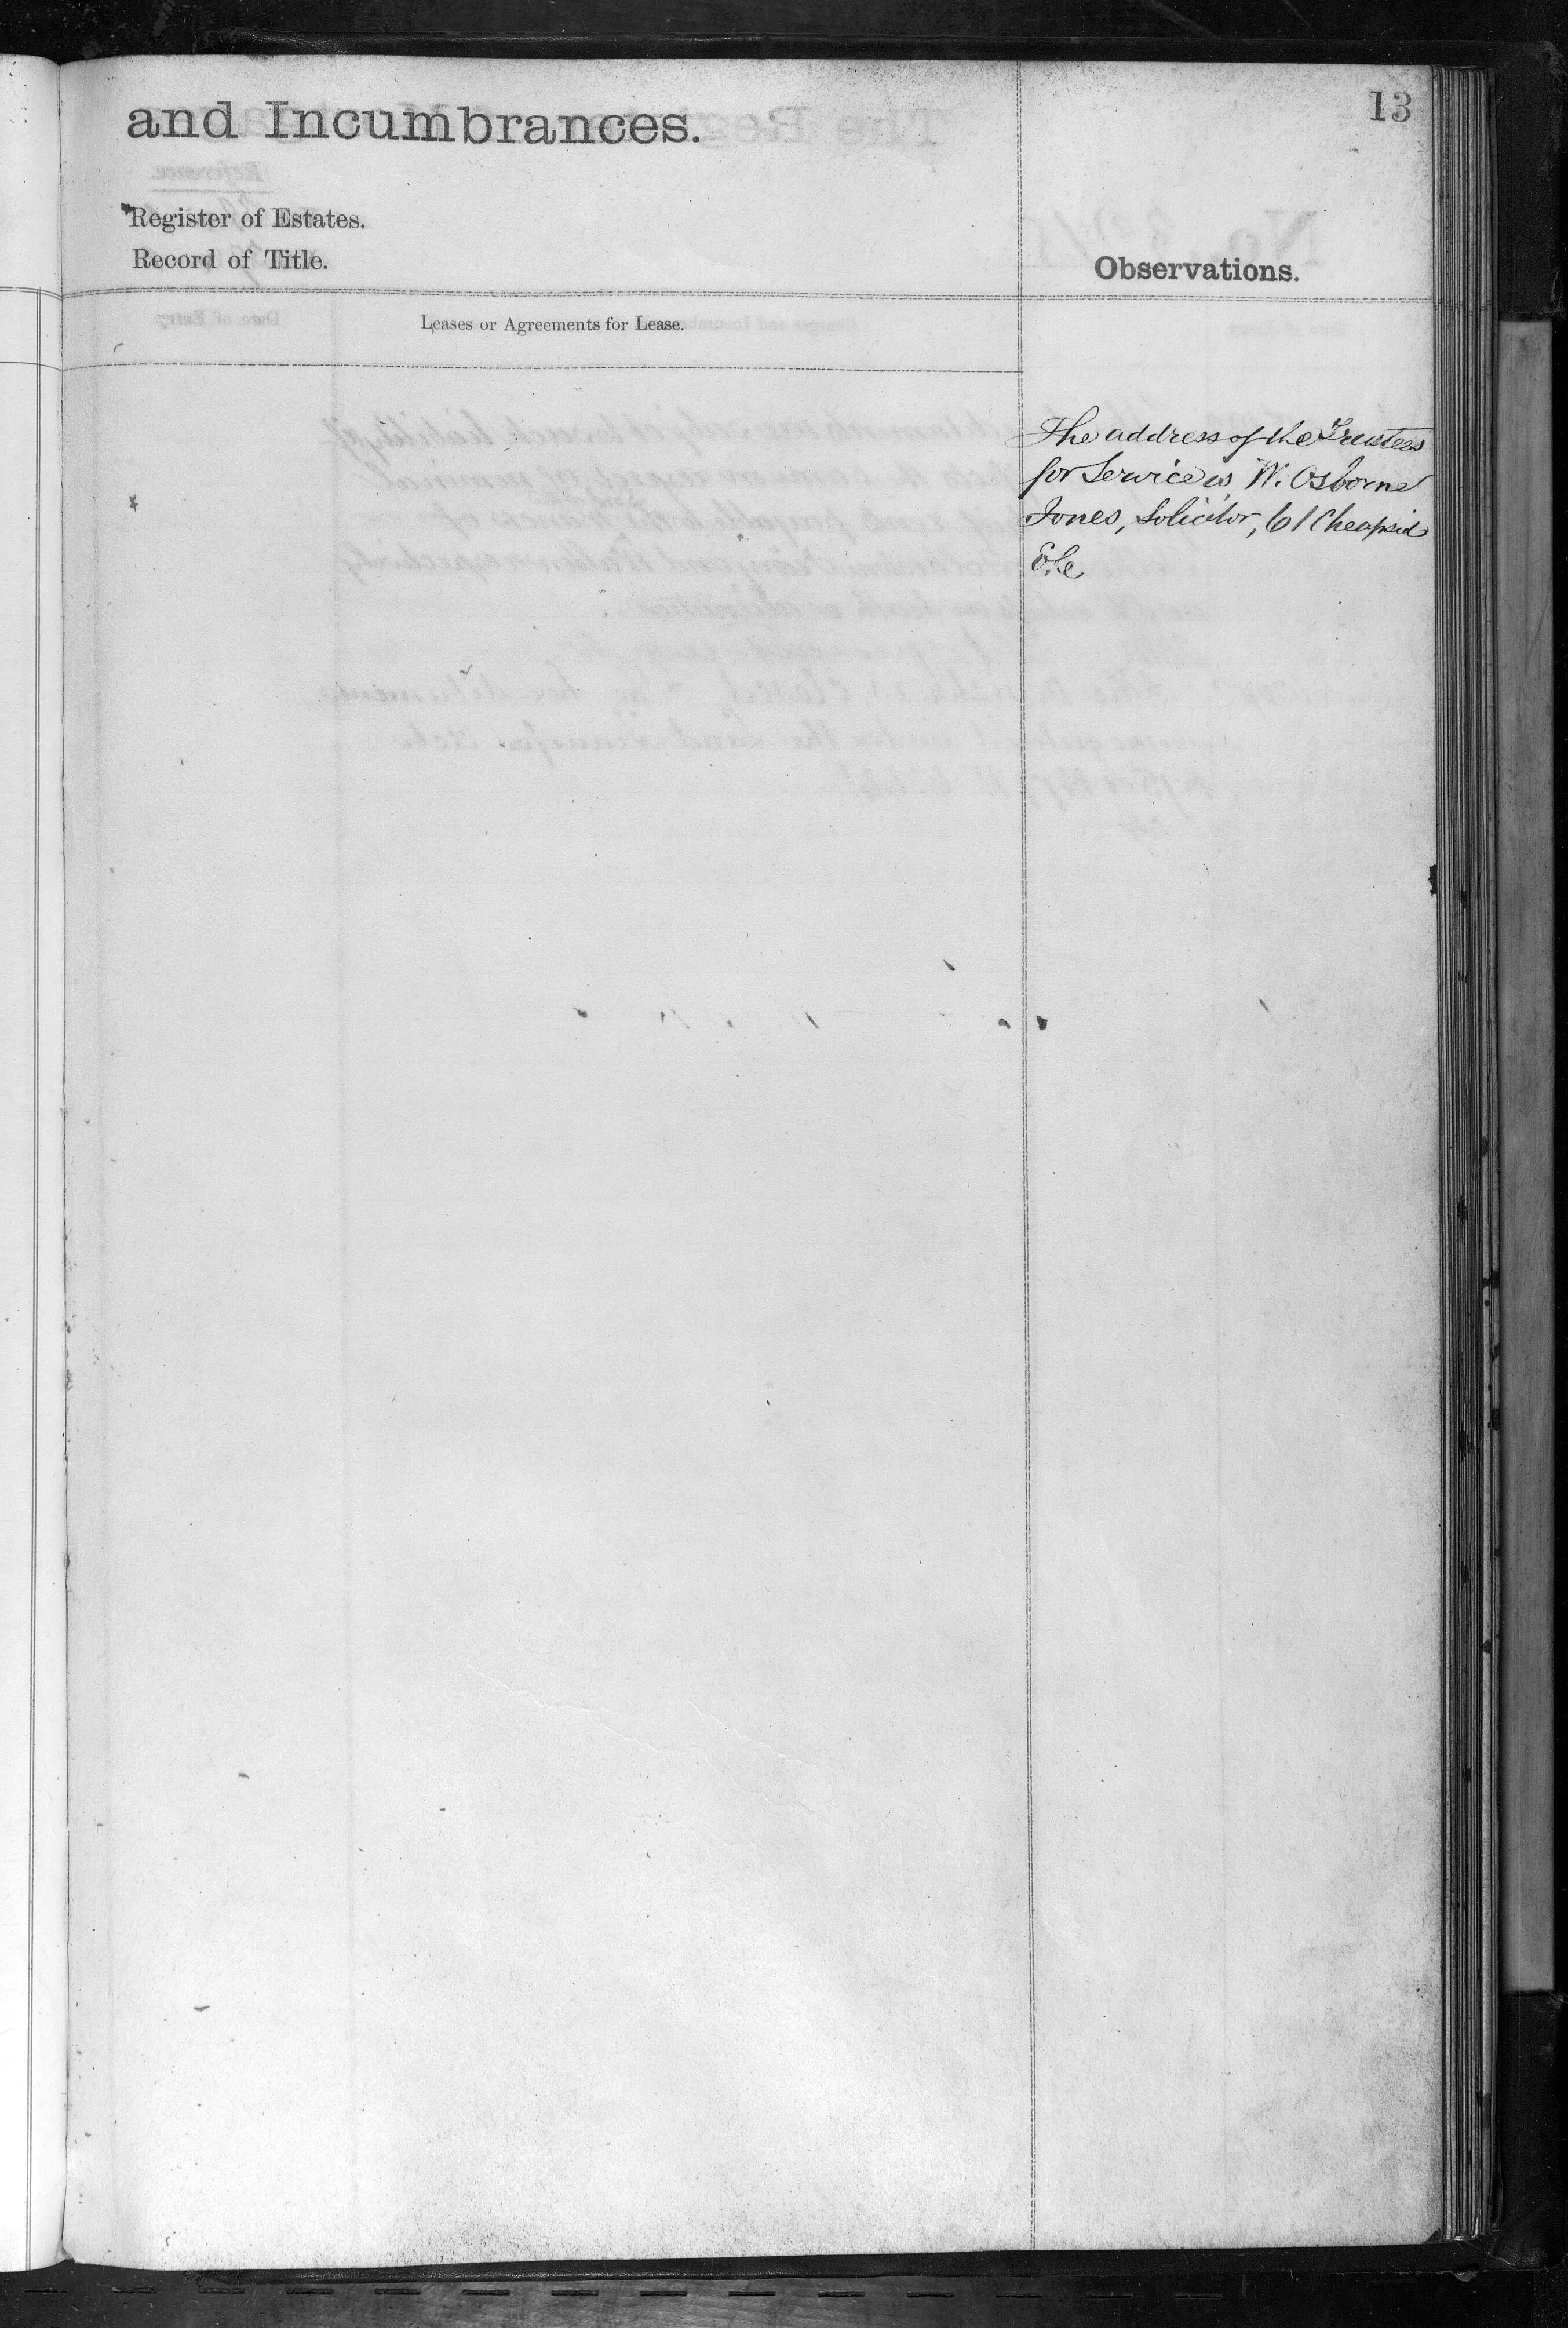 and Incumbrances.
13
Register of Estates.
Record of Title.
Observations.
Leases or Agreements for Lease.
The address of the Trustees
for Service is W. Osborne
Jones, Solicitor, 61 Cheapside
E.C.